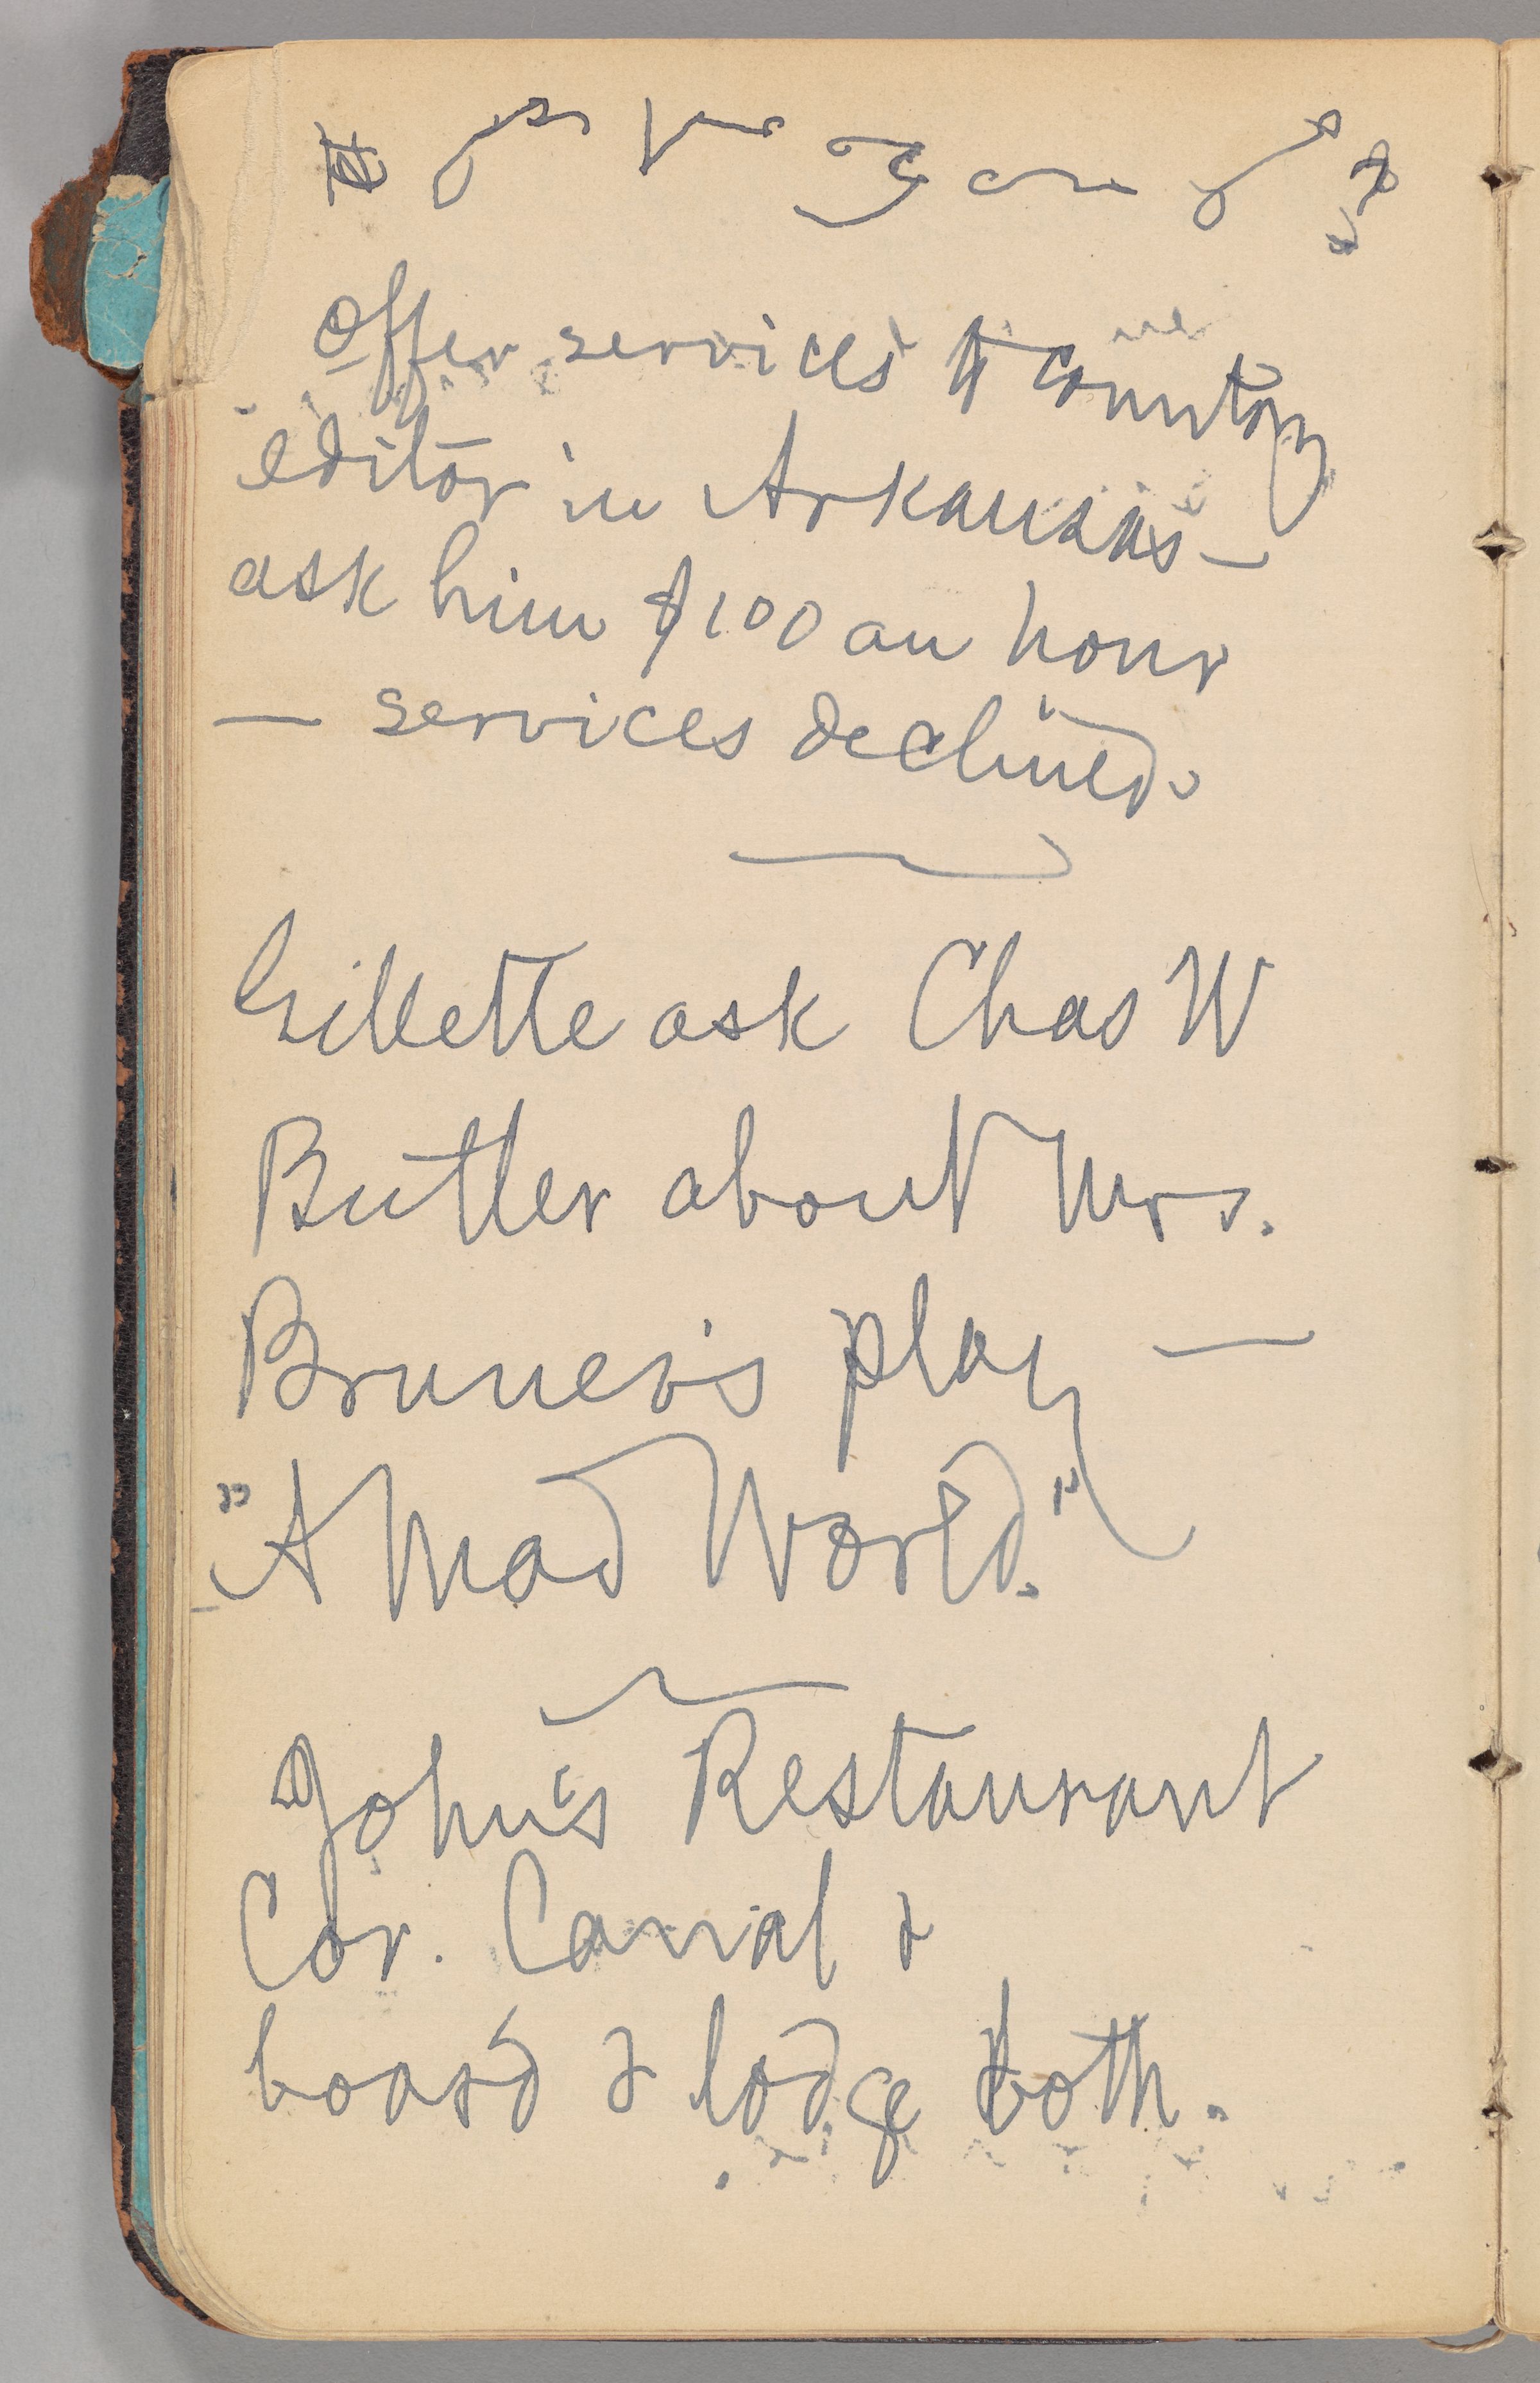 Offer services to country
editor in Arkansas —
ask him $100 an hour
— services declined.
Gillette ask Chas W
Butler about Mrs.
Bruner's play —
"A Mad World."
John's Restaurant
Cor. Canal &
board & lodge both.